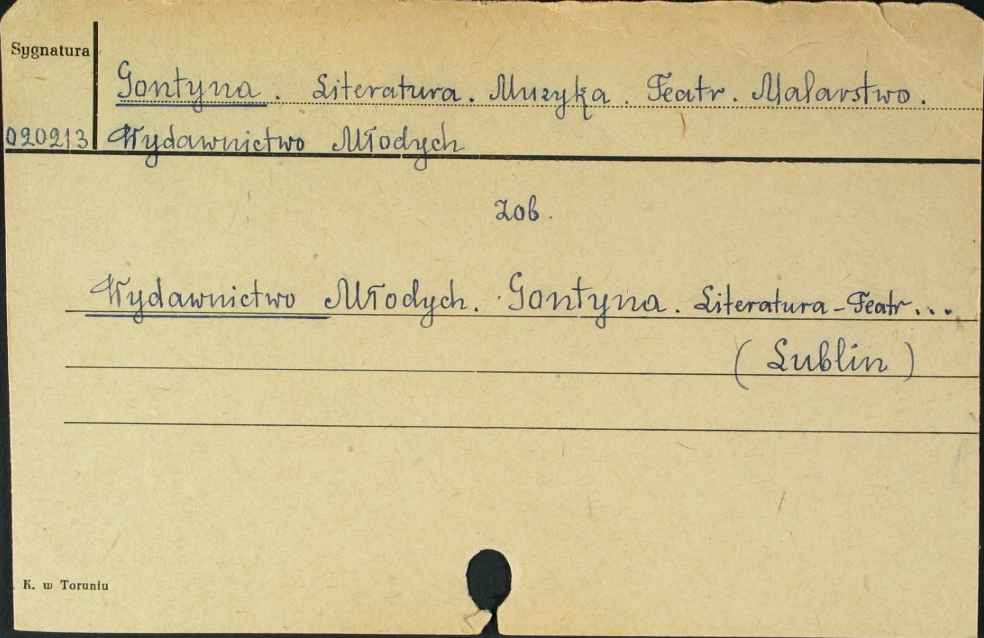 Sygnatura
Gontyna. Literatura. Muzyka. Teatr. Malarstwo.
020213 Wydawnictwo Młodych
zob.
Wydawnictwo Młodych. Gontyna. Literatura-Teatr...
(Lublin)
K. w Toruniu